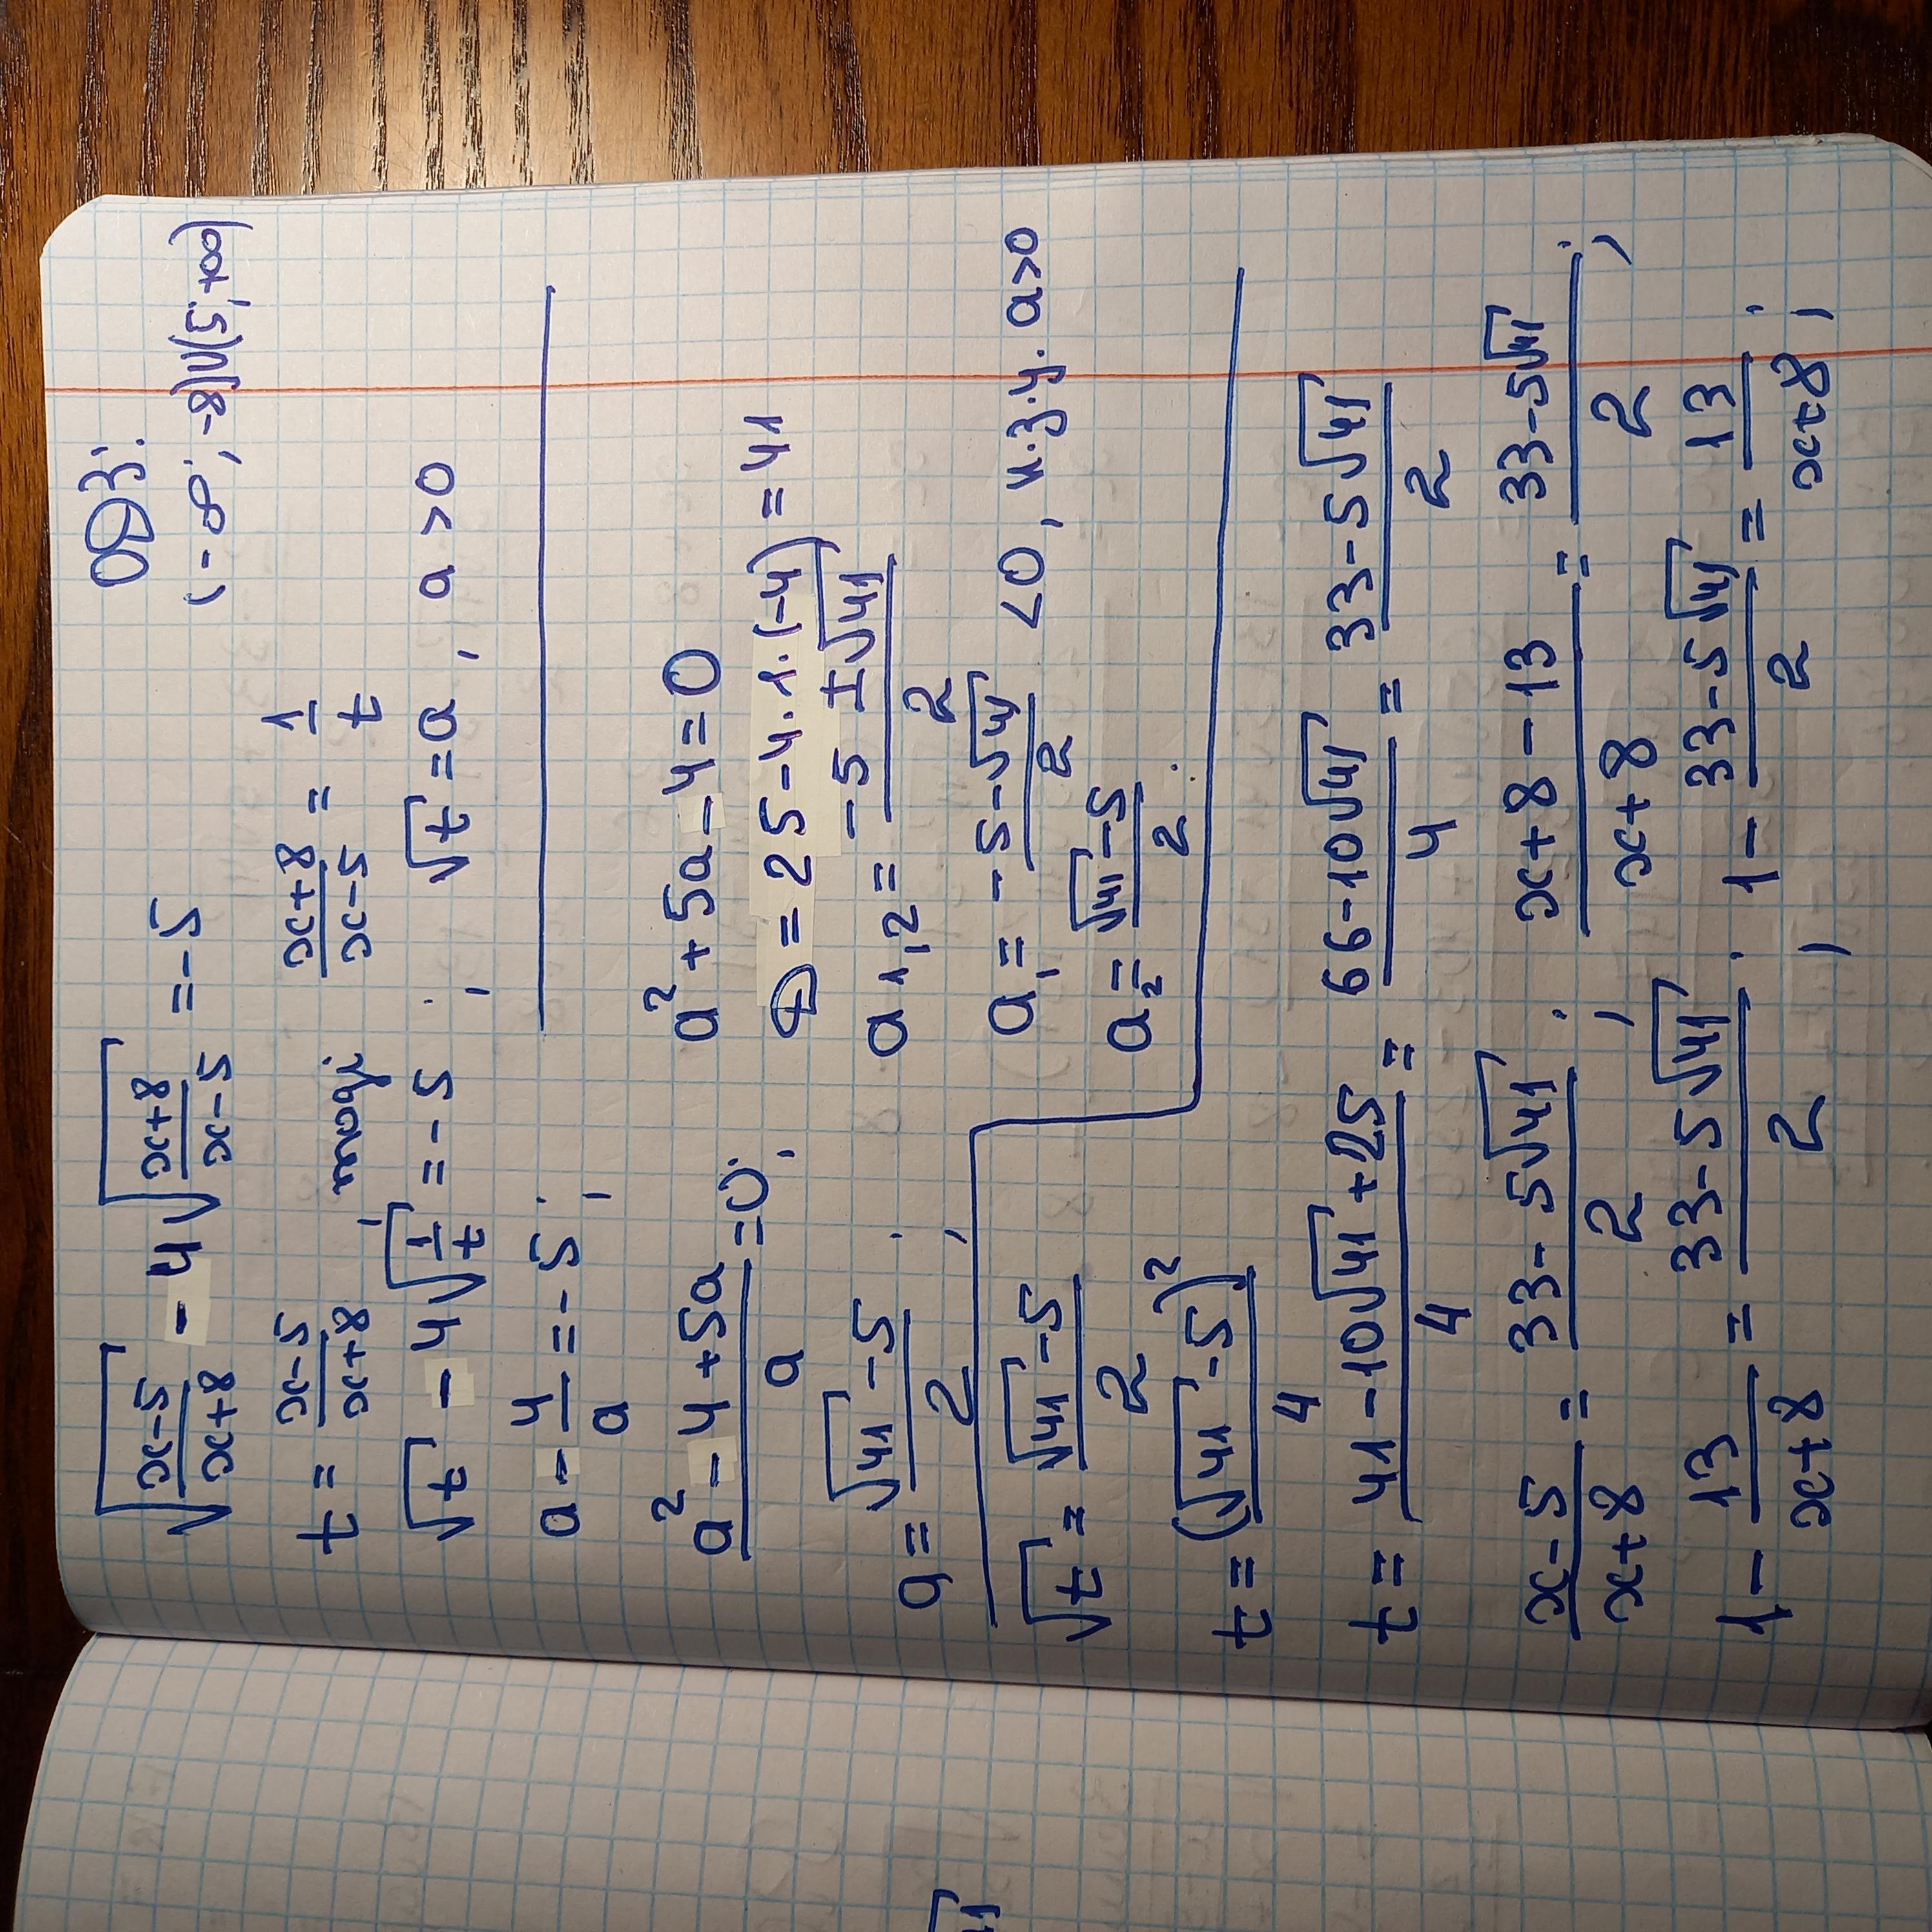 √((x-5)/(x+8)) - 4√((x+8)/(x-5)) = -5 ОДЗ:
(-∞; -8)∪(5; +∞)
t = (x-5)/(x+8) тогда, (x+8)/(x-5) = 1/t
√t - 4√(1/t) = -5; √t = a, a > 0
a - 4/a = -5;
(a² - 4 + 5a)/a = 0; a² + 5a - 4 = 0
D = 25 - 4·1·(-4) = 41
a = (√41 - 5)/2; a₁,₂ = (-5 ± √41)/2
a₁ = (-5-√41)/2 < 0, н.з.у. a>0
√t = (√41 - 5)/2 a₂ = (√41-5)/2.
t = (√41 - 5)²/4
t = (41 - 10√41 + 25)/4 = (66-10√41)/4 = (33-5√41)/2
(x-5)/(x+8) = (33-5√41)/2; (x+8-13)/(x+8) = (33-5√41)/2;
1 - 13/(x+8) = (33-5√41)/2; 1 - (33-5√41)/2 = 13/(x+8);